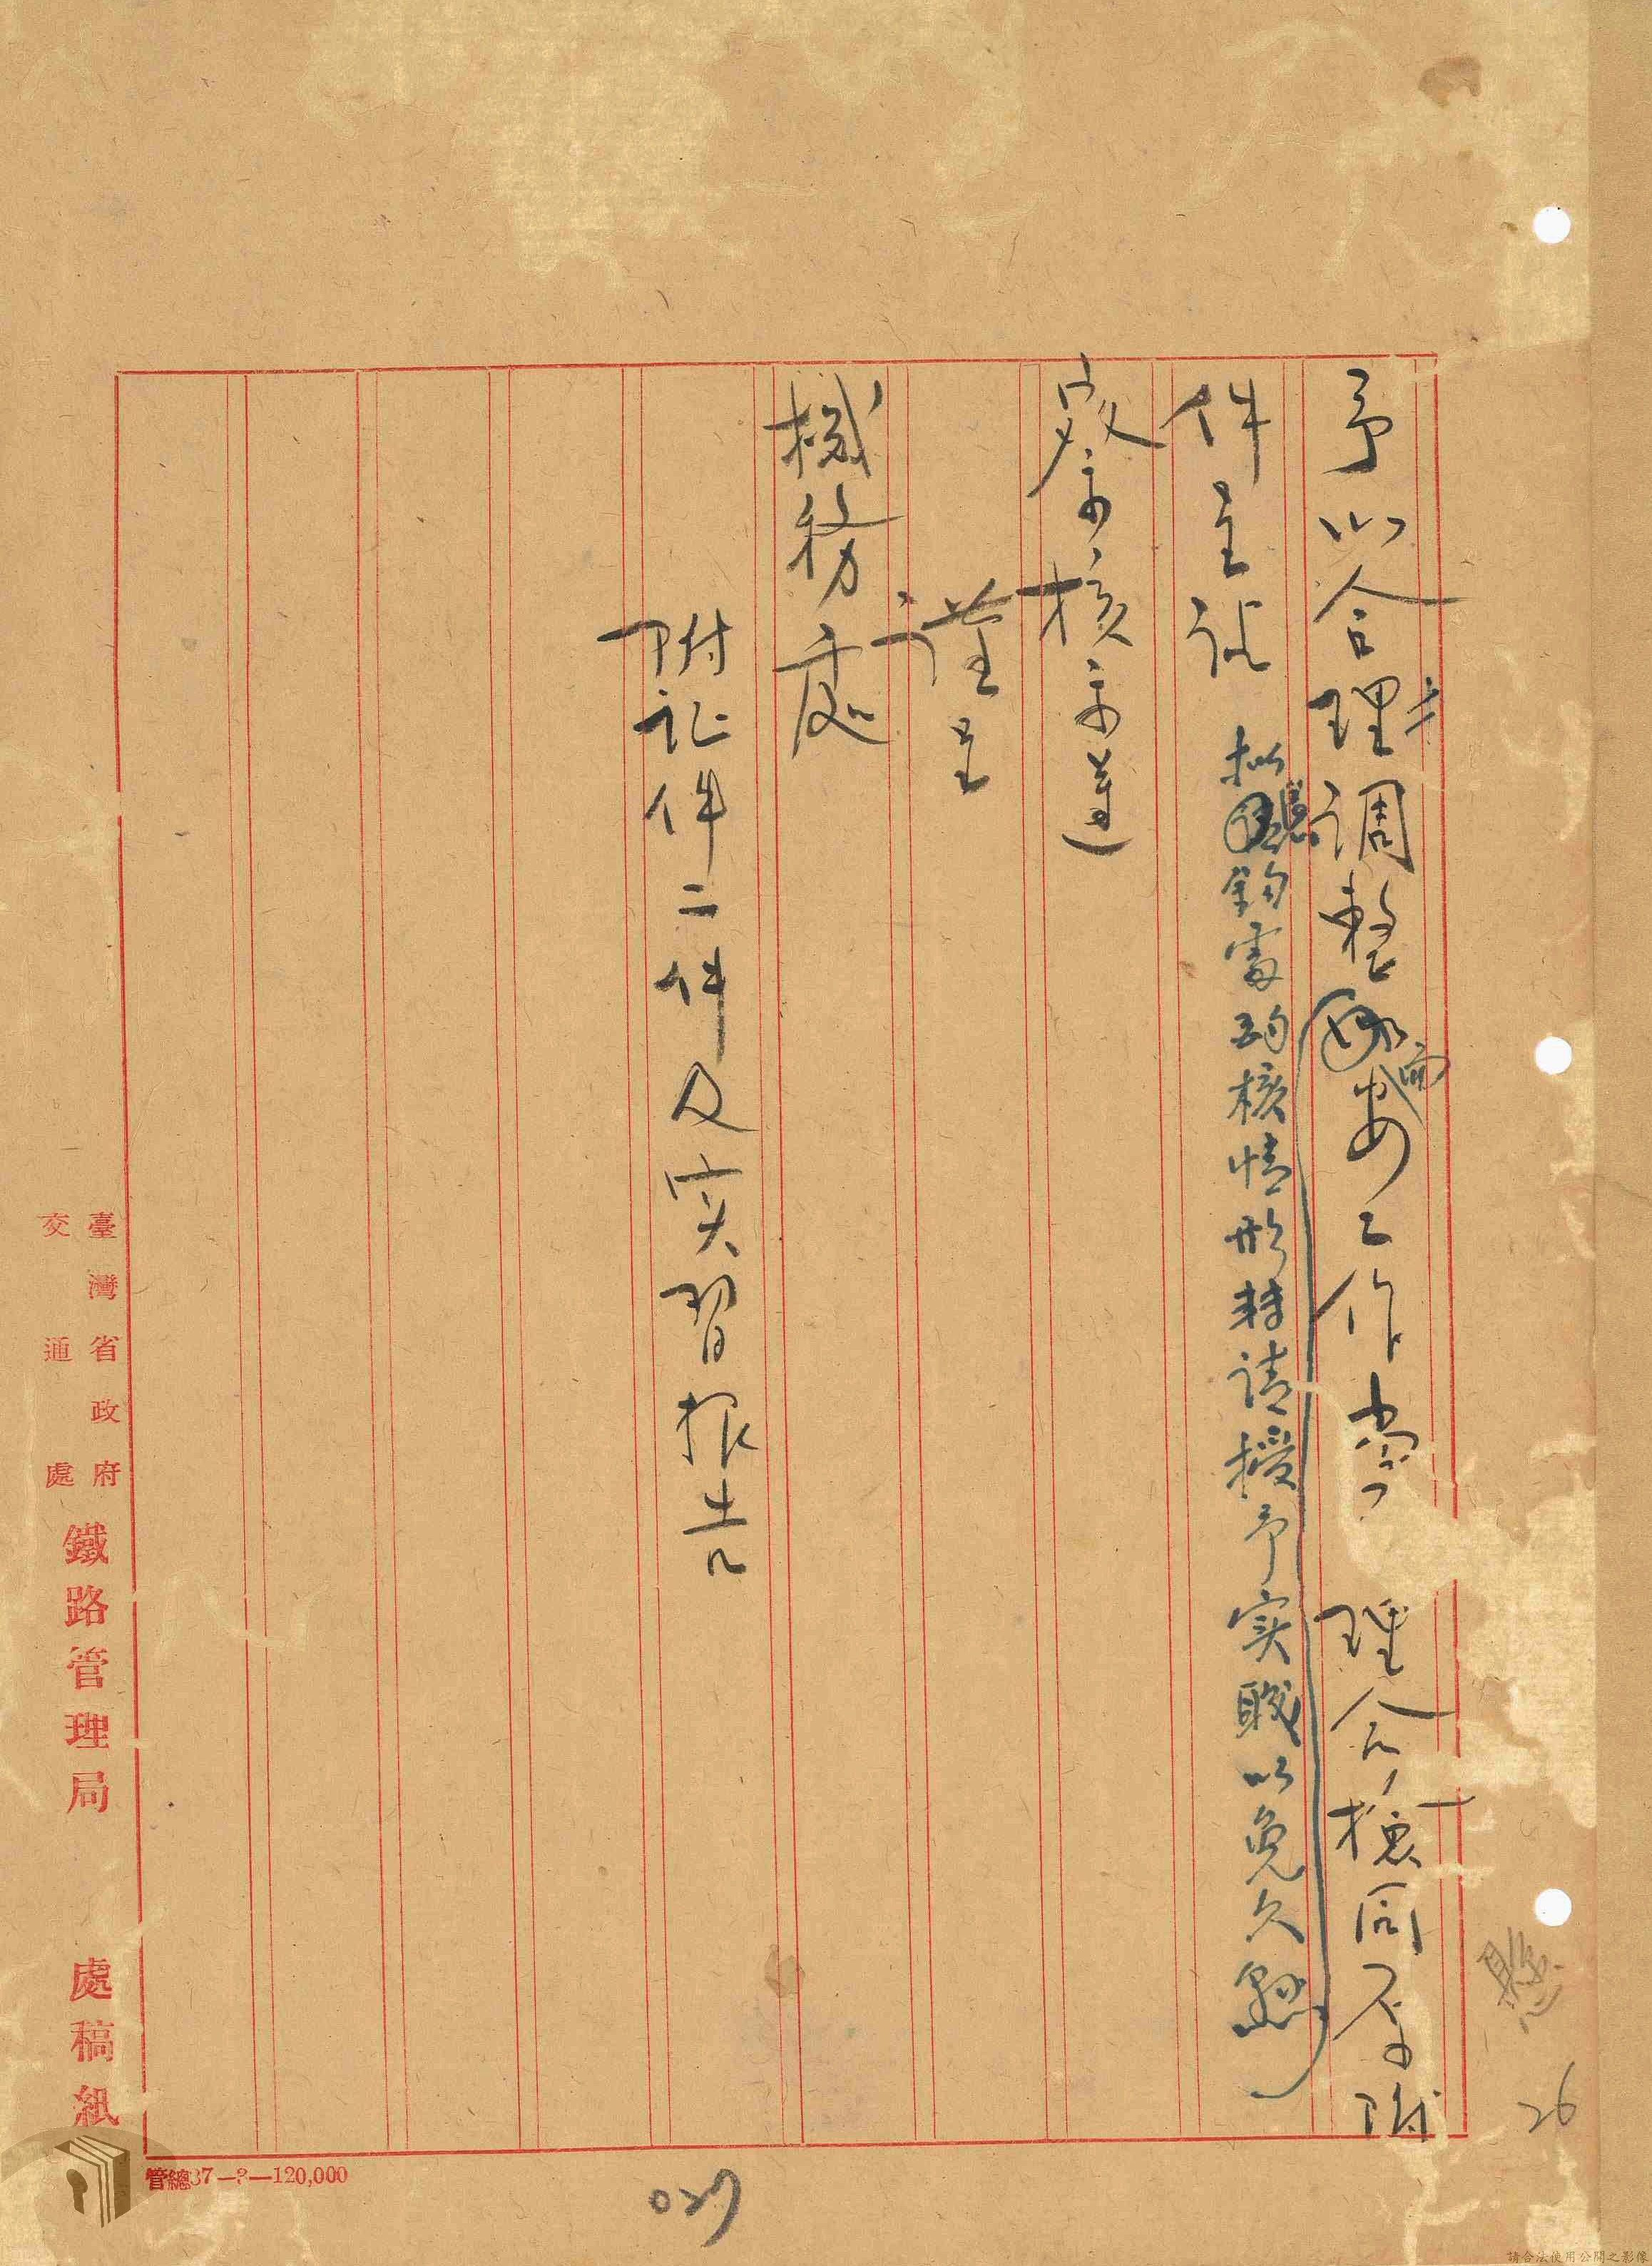 予以合理調整
而安工作
理合檢同原附
件呈請
拟
鈞處
核情形轉请授予实職以免久懸
察示核示遵
謹呈
機務處
附证件二件及实習报告
臺灣省政府
交通處
鐵路管理局
處稿紙
管總37—?—120,000
懸
26
027
請合法使用公開之影像